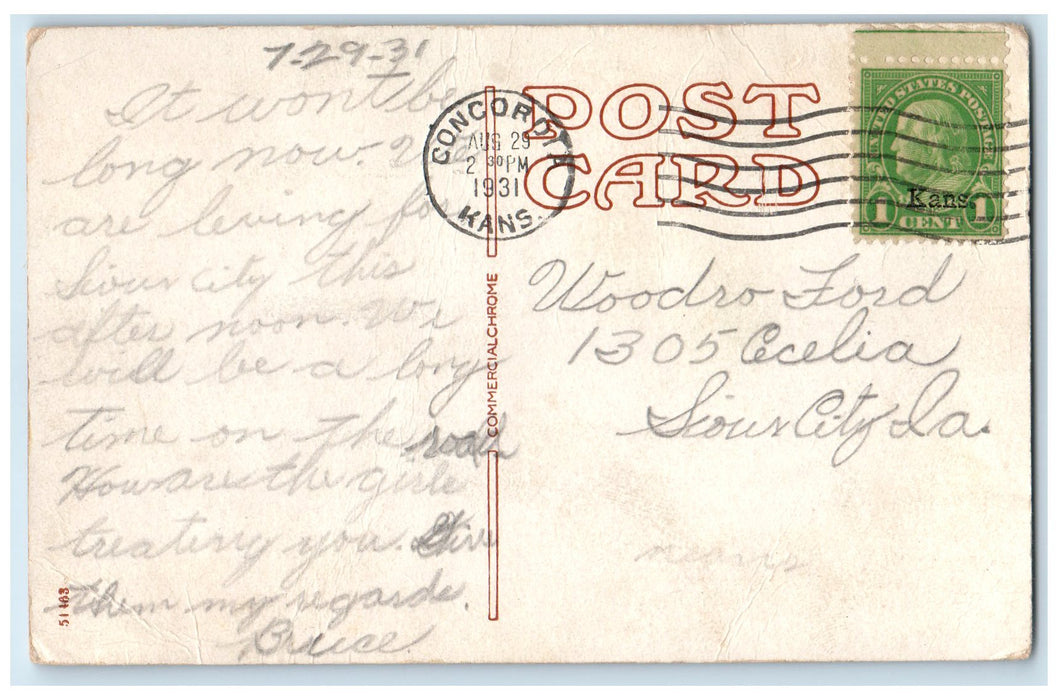 7-29-31
It wont be
long now. We
are leving for
Sioux City this
after noon. We
will be a long
time on the road
How are the girls
treating you. Give
them my regards.
Bruce.
51463
COMMERCIALCHROME
POST
CARD
CONCORDIA
AUG 29
2 30 PM
1931
KANS.
UNITED STATES POSTAGE
FRANKLIN
Kans.
1 CENT 1
Woodro Ford
1305 Cecelia
Sioux City Ia.